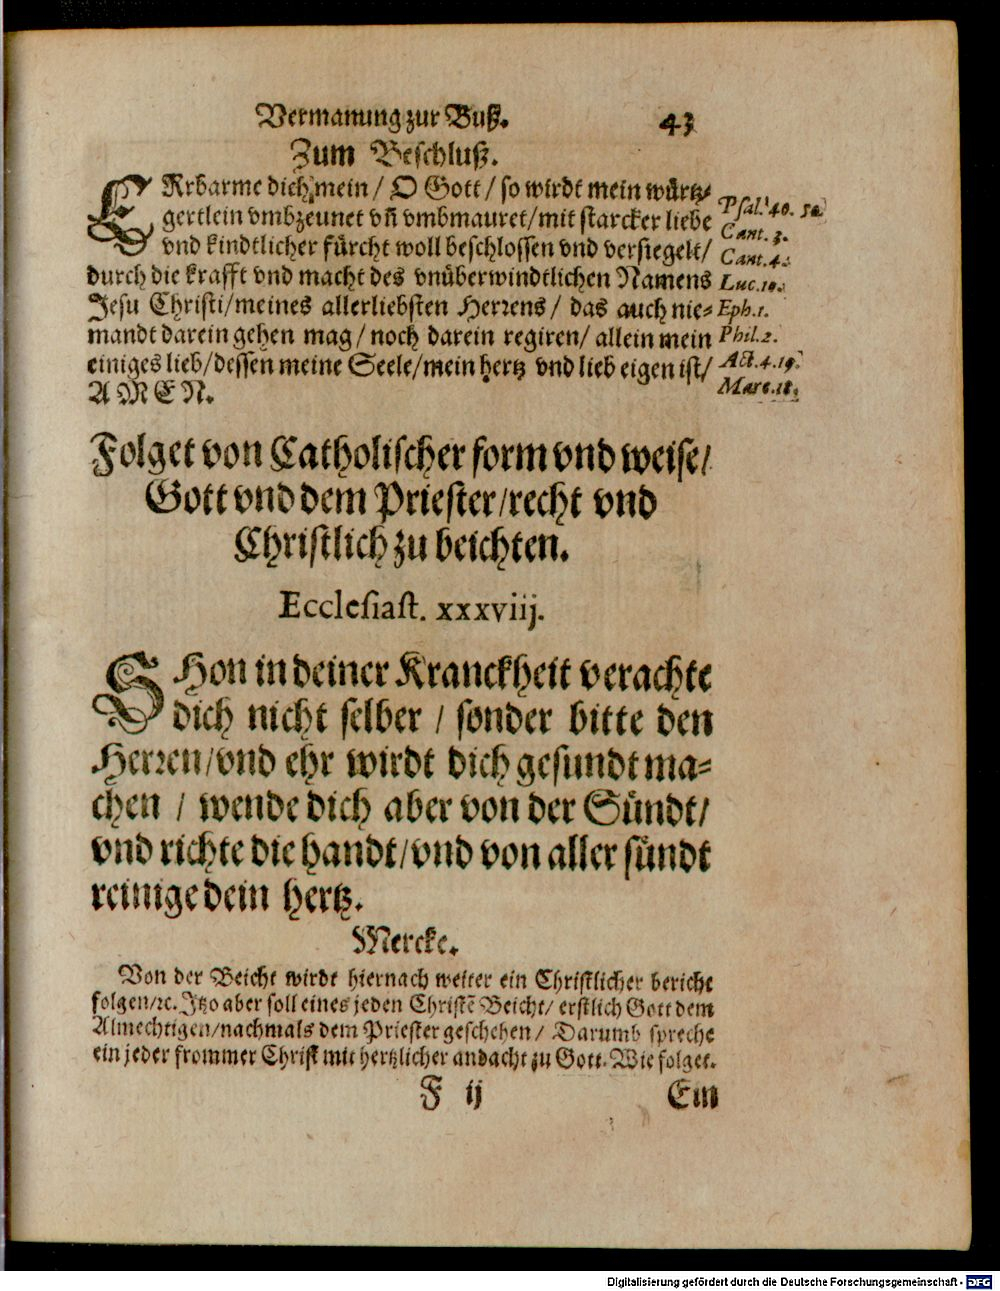 Vermanung zur Buß. 43
Zum Beschluß.
ERbarme dich mein / O Gott / so wirdt mein würtz⸗
gertlein vmbzeunet vñ vmbmauret / mit starcker liebe
vnd kindtlicher fürcht woll beschlossen vnd versiegelt /
durch die krafft vnd macht des vnüberwindtlichen Namens
Jesu Christi / meines allerliebsten Herrens / das auch nie⸗
mandt darein gehen mag / noch darein regiren / allein mein
einiges lieb / dessen meine Seele / mein hertz vnd lieb eigen ist /
AMEN.
Psal. 40. 50.
Cant. 3.
Cant. 4.
Luc. 10.
Eph. 1.
Phil. 2.
Act. 4. 19.
Marc.
Folget von Catholischer form vnd weise /
Gott vnd dem Priester / recht vnd
Christlich zu beichten.
Ecclesiast. xxxviij.
SHon in deiner Kranckheit verachte
dich nicht selber / sonder bitte den
Herren / vnd ehr wirdt dich gesundt ma⸗
chen / wende dich aber von der Sündt /
vnd richte die handt / vnd von aller sündt
reinige dein hertz.
Mercke.
Von der Beicht wirdt hiernach weiter ein Christlicher bericht
folgen / ꝛc. Jtzo aber soll eines jeden Christẽ Beicht / erstlich Gott dem
Almechtigen / nachmals dem Priester geschehen / Darumb spreche
ein jeder frommer Christ mit hertzlicher andacht zu Gott. Wie folget.
F ij Ein
Digitalisierung gefördert durch die Deutsche Forschungsgemeinschaft - DFG